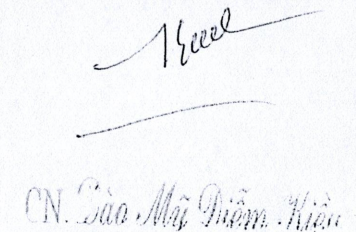 CN. Đào Mỹ Diễm Kiều